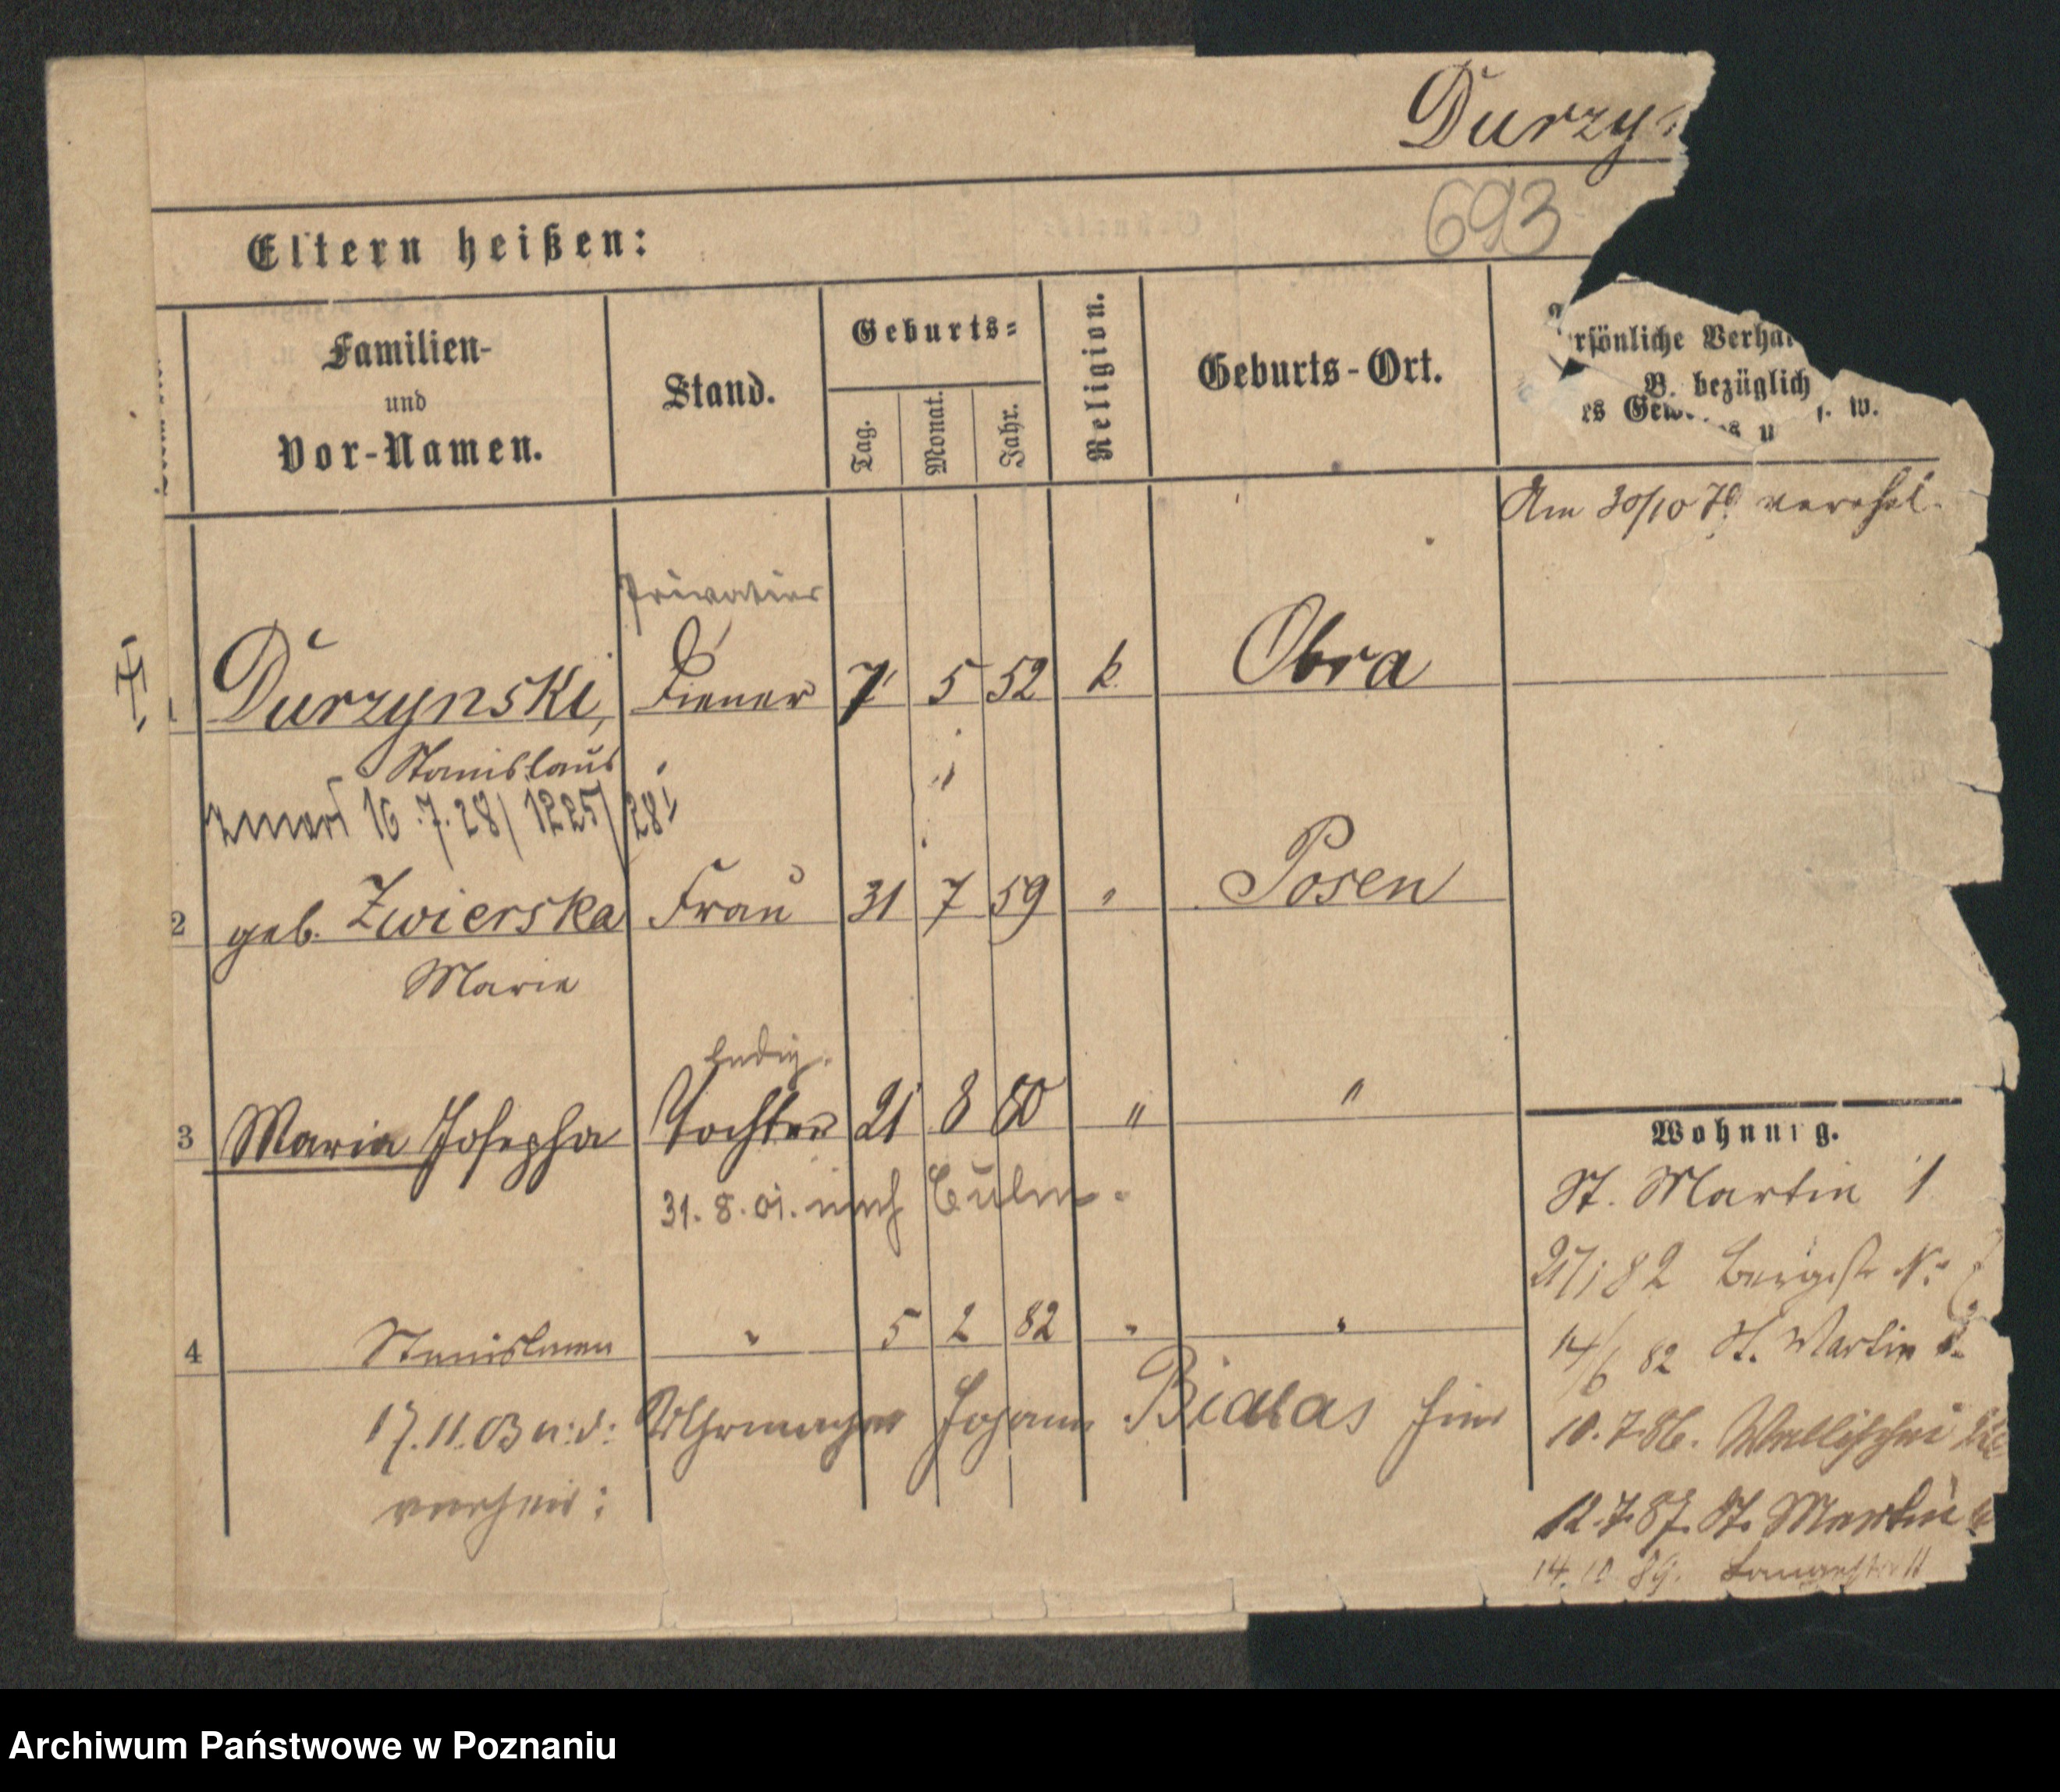 Durzyn
693
Eltern heißen:
Familien-
und
Vor-Namen.
Stand.
Geburts-
Tag.
Monat.
Jahr.
Religion.
Geburts-Ort.
rsönliche Verhä
B. bezüglich
es Gew es u s. w.
Am 30/10 79 verehel.
Privatier
1 Durzynski, Diener 7 5 52 k. Obra
Stanislaus
zmarł 16.7.28/1225/28
2 geb. Zwierska Frau 31 7 59 " Posen
Marie
ledig.
3 Maria Josepha Tochter 21 8 80 " "
31.8.01. nach Culm.
Wohnung.
St. Martin 1
82 Bergstr. Nr.
4 Stanislawa " 5 2 82 " "
14/6 82 St. Martin
17.11.03 m: d: Uhrmacher Johann Bialas hier
verheir:
10.7.86. Wallischei
12.7.87. St. Martin
14.10 89.
Archiwum Państwowe w Poznaniu